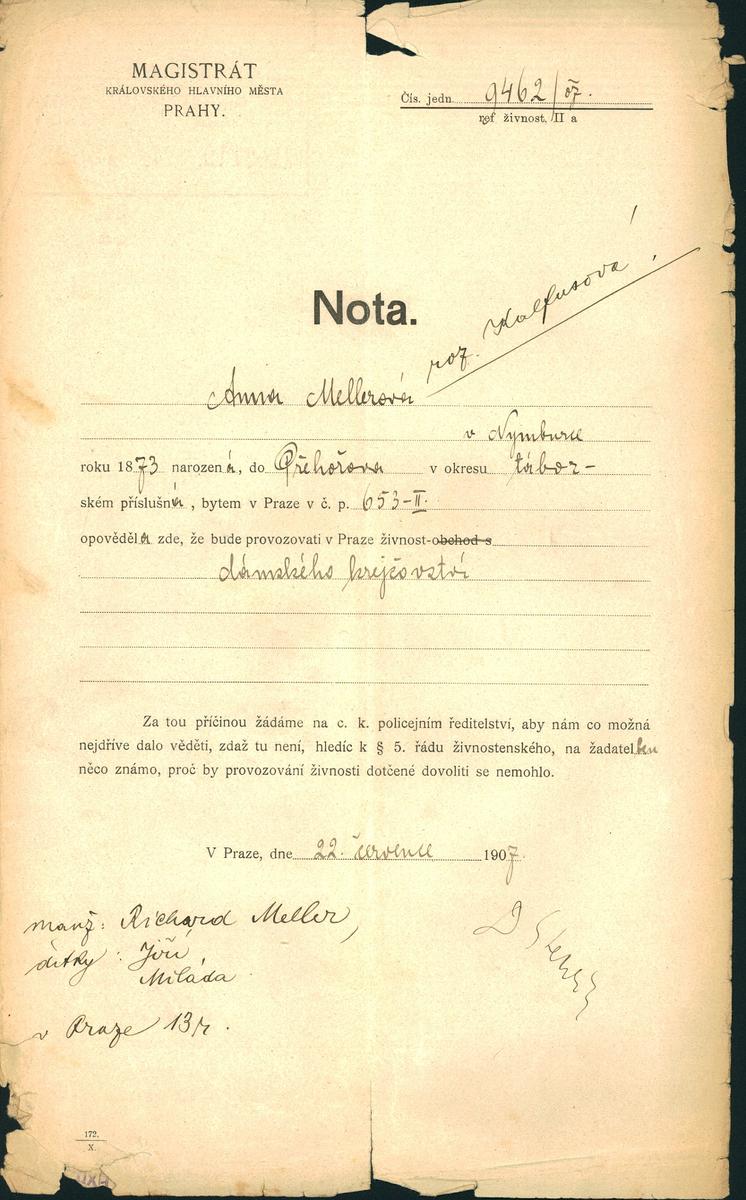 MAGISTRÁT
KRÁLOVSKÉHO HLAVNÍHO MĚSTA
PRAHY.
Čís. jedn. 9462/07.
ref živnost. II a
Nota.
roz. Kalfusová
Anna Mellerová
v Nymburce
roku 1873 narozená, do Přehořova v okresu tábor-
ském příslušná, bytem v Praze v č. p. 653-II.
opověděla zde, že bude provozovati v Praze živnost-obchod s
dámského krejčovství
Za tou příčinou žádáme na c. k. policejním ředitelství, aby nám co možná
nejdříve dalo věděti, zdaž tu není, hledíc k § 5. řádu živnostenského, na žadatelku
něco známo, proč by provozování živnosti dotčené dovoliti se nemohlo.
V Praze, dne 22. července 1907.
manž: Richard Meller,
dítky: Jiří
Miláda
v Praze 13 r.
172.
X.